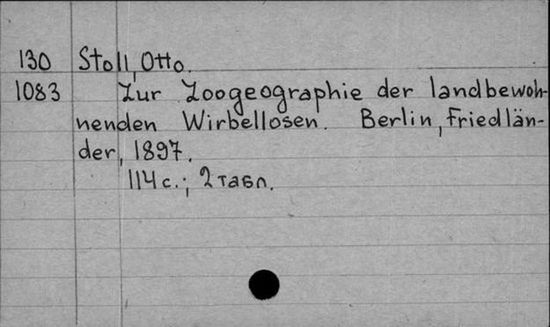 130 Stoll, Otto.
1083 Zur Zoogeographie der landbewoh-
nenden Wirbellosen. Berlin, Friedlän-
der, 1897.
114 с.; 2 табл.